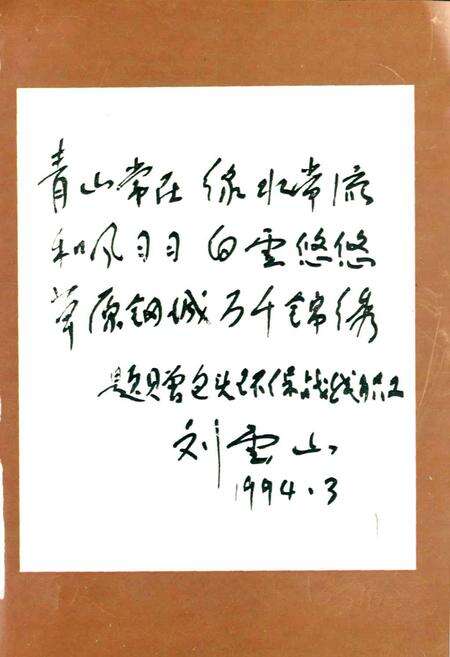 青山常在 绿水常流
和风习习 白云悠悠
草原钢城 万千锦绣
题赠包头环保战线职工
刘云山
1994.3